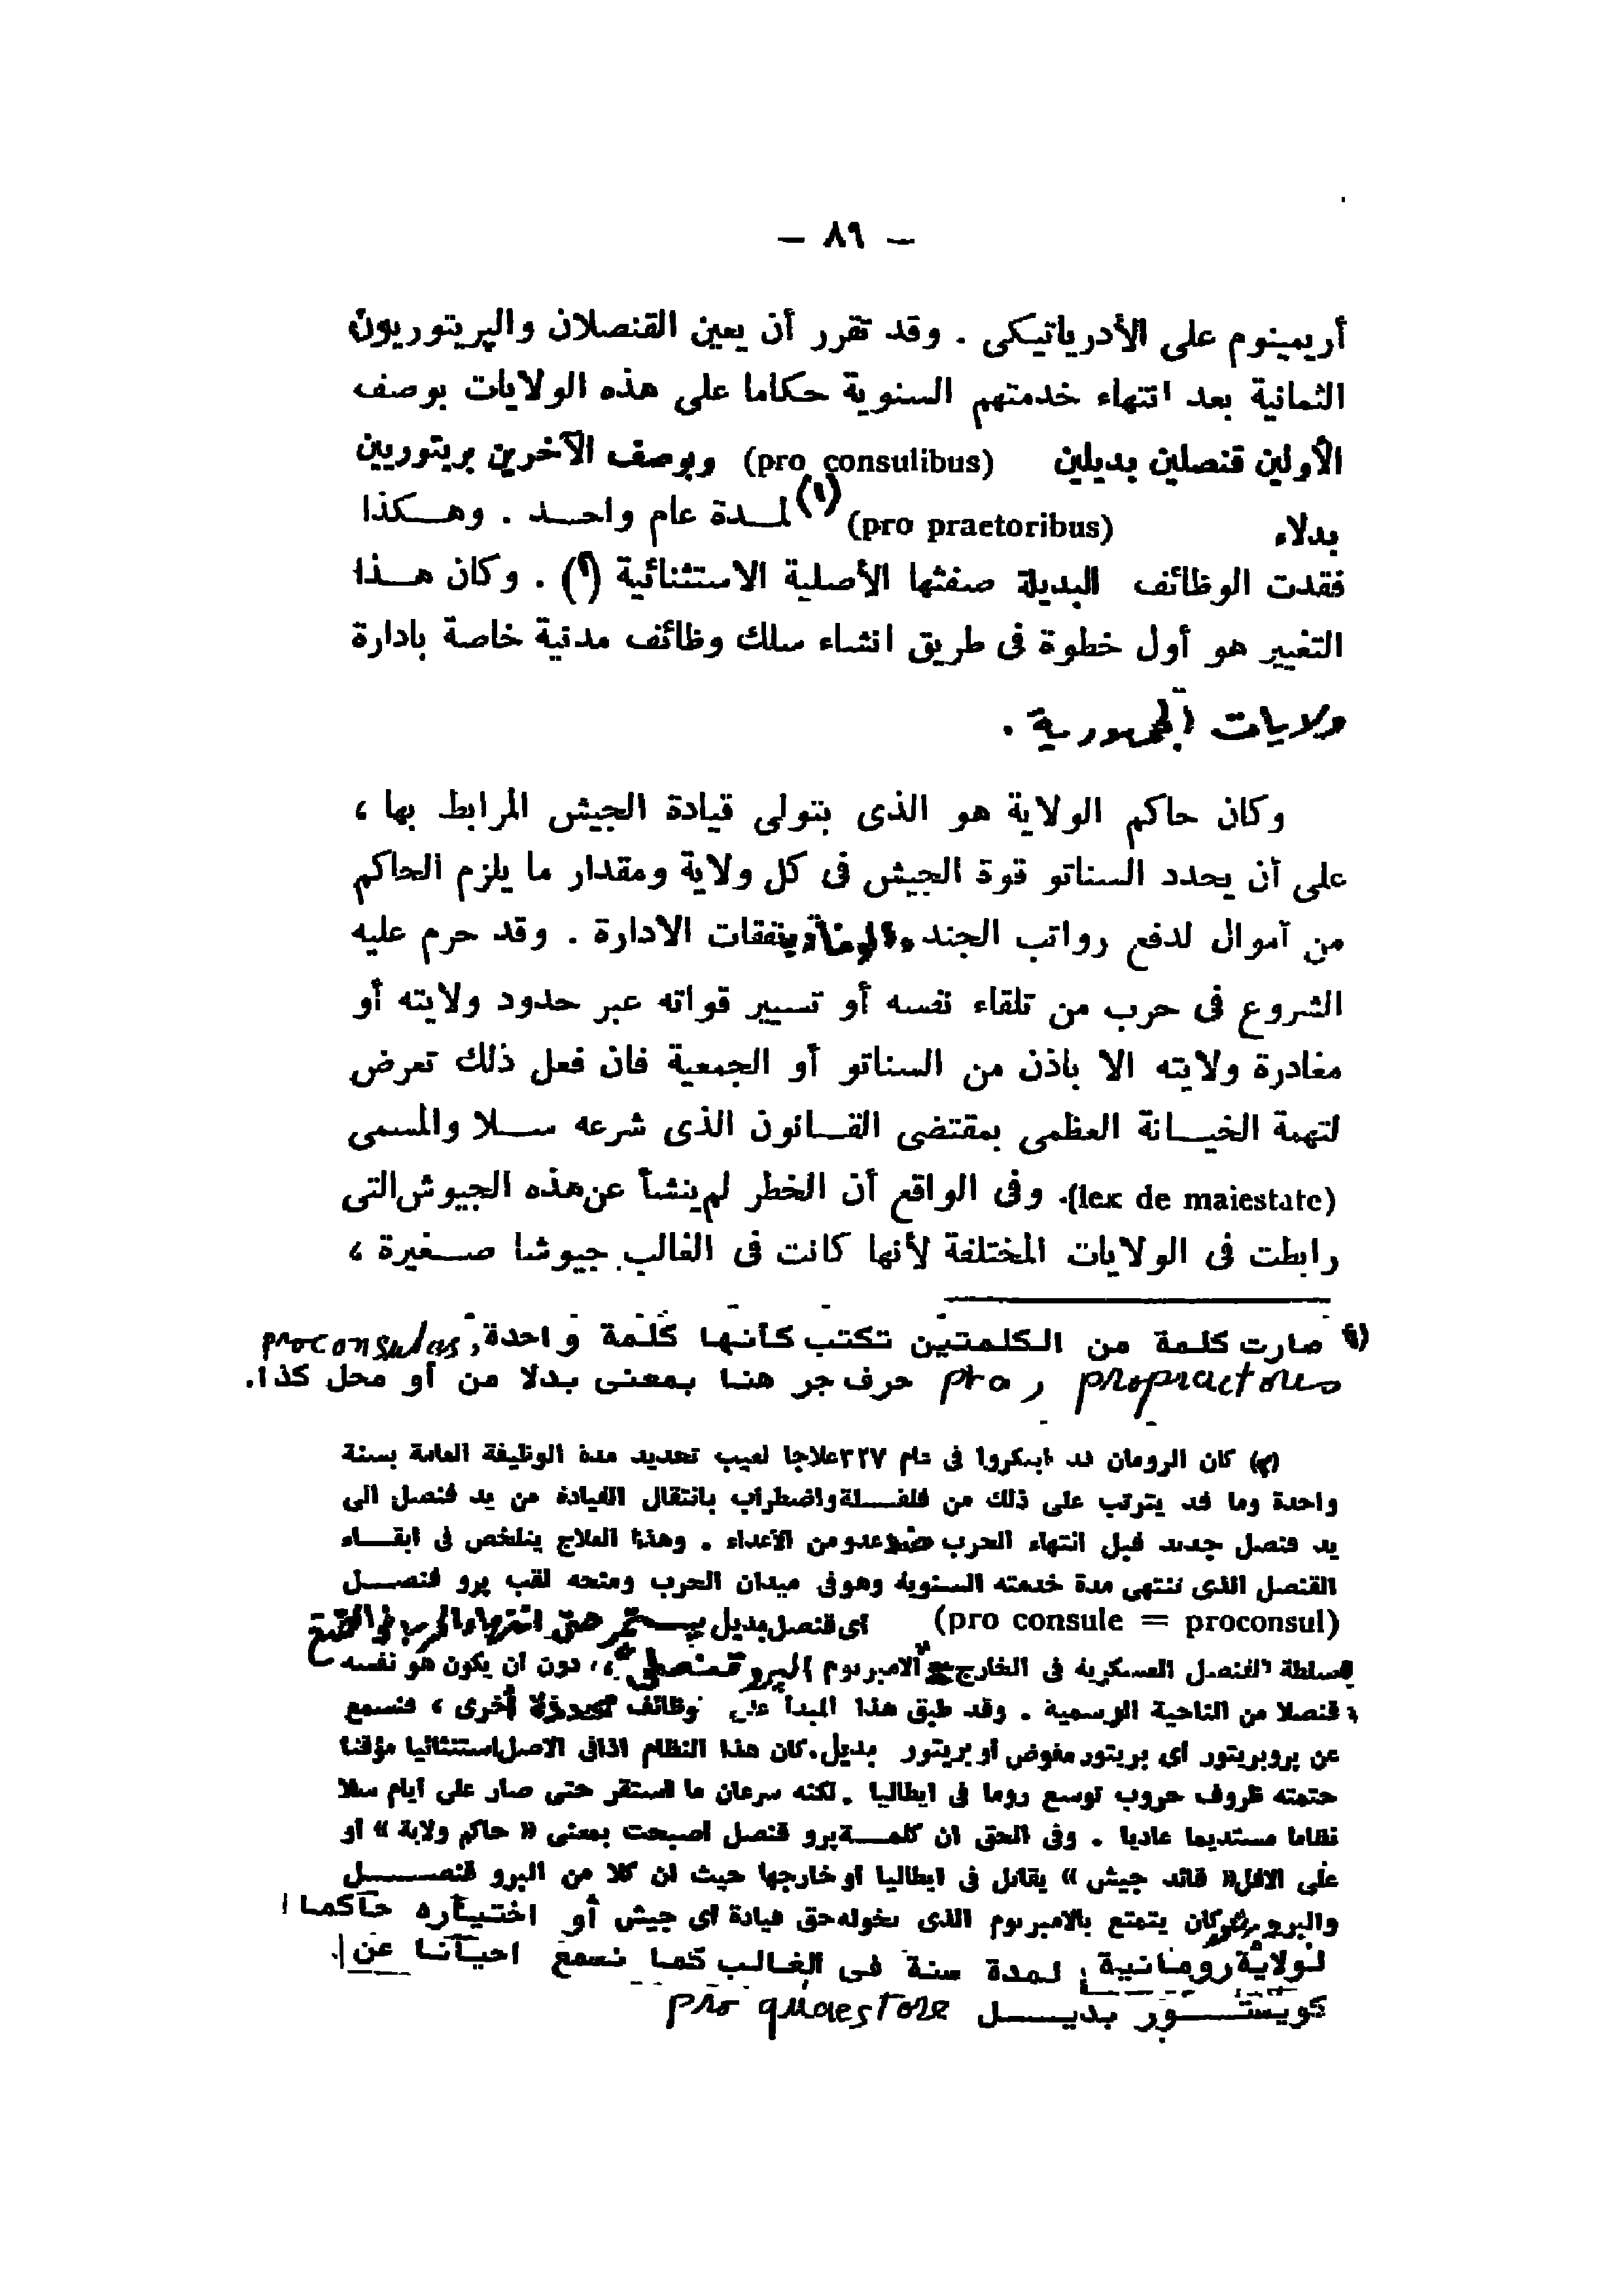 — ٨٩ —
أريمينوم على الأدرياتيكى . وقد تقرر أن يعين القنصلان والپريتوريون
الثمانية بعد انتهاء خدمتهم السنوية حكاما على هذه الولايات بوصف
الأولين قنصلين بديلين (pro consulibus) وبوصف الآخرين بريتوريين
بدلاء (pro praetoribus) (١) لمدة عام واحد . وهكذا
فقدت الوظائف البديلة صفتها الأصلية الاستثنائية (٢) . وكان هذا
التغيير هو أول خطوة فى طريق انشاء سلك وظائف مدنية خاصة بادارة
ولايات الجمهورية .
وكان حاكم الولاية هو الذى يتولى قيادة الجيش المرابط بها ،
على أن يحدد السناتو قوة الجيش فى كل ولاية ومقدار ما يلزم الحاكم
من أموال لدفع رواتب الجند ونفقات الادارة . وقد حرم عليه
الشروع فى حرب من تلقاء نفسه أو تسيير قواته عبر حدود ولايته أو
مغادرة ولايته الا باذن من السناتو أو الجمعية فان فعل ذلك تعرض
لتهمة الخيانة العظمى بمقتضى القانون الذى شرعه سلا والمسمى
(lex de maiestate). وفى الواقع أن الخطر لم ينشأ عن هذه الجيوش التى
رابطت فى الولايات المختلفة لأنها كانت فى الغالب جيوشا صغيرة ،
(١) صارت كلمة من الكلمتين تكتب كأنها كلمة واحدة, proconsules,
propraetores و pro حرف جر هنا بمعنى بدلا من أو محل كذا.
(٢) كان الرومان قد ابتكروا فى عام ٣٢٧ علاجا لعيب تحديد مدة الوظيفة العامة بسنة
واحدة وما قد يترتب على ذلك من قلقلة واضطراب بانتقال القيادة من يد قنصل الى
يد قنصل جديد قبل انتهاء الحرب ضد عدو من الأعداء . وهذا العلاج يتلخص فى ابقاء
القنصل الذى تنتهى مدة خدمته السنوية وهو فى ميدان الحرب ومنحه لقب پرو قنصل
(pro consule = proconsul) أى قنصل بديل يستمر حتى انتهاء الحرب فى التمتع
بسلطة القنصل العسكرية فى الخارج " الامبريوم البرو قنصلى " ، دون أن يكون هو نفسه
قنصلا من الناحية الرسمية . وقد طبق هذا المبدأ على وظائف أخرى ، فنسمع
عن بروبريتور أى بريتور مفوض أو بريتور بديل. كان هذا النظام اذا فى الاصل استثنائيا مؤقتا
حتمته ظروف حروب توسع روما فى ايطاليا . لكنه سرعان ما استقر حتى صار على أيام سلا
نظاما مستديما عاديا . وفى الحق ان كلمة پرو قنصل اصبحت بمعنى « حاكم ولاية » أو
على الاقل « قائد جيش » يقاتل فى ايطاليا أو خارجها حيث ان كلا من البرو قنصل
والبروبريتور كان يتمتع بالامبريوم الذى يخوله حق قيادة أى جيش أو اختياره حاكما
لولاية رومانية لمدة سنة فى الغالب كما نسمع احيانا عن
كويستور بديل pro quaestore